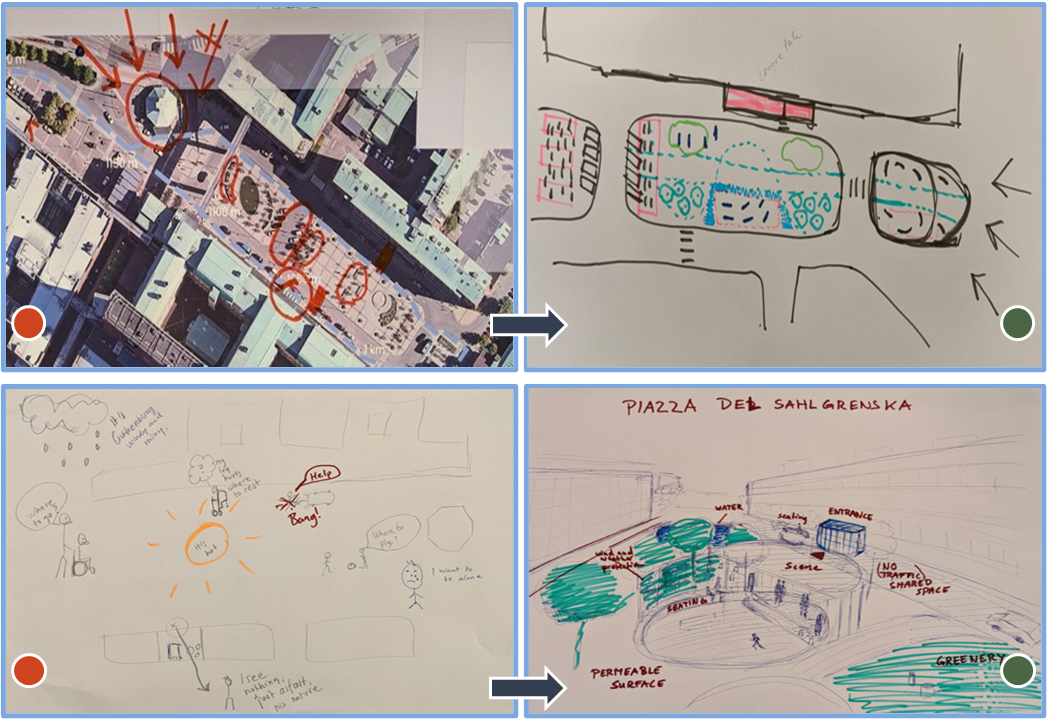 0 m
1150 m
1100 m
1 km
It's
Gothenburg
windy and
rainy.
my
leg
hurts
where
to rest
where
to go?
Help
Bang!
It's
hot
Where to
play?
I want to
be alone
I see
nothing,
just asfalt,
no nature
PIAZZA DEL SAHLGRENSKA
WATER
seating
ENTRANCE
wind and
weather
protection
Scene
(NO
TRAFFIC)
SHARED
SPACE
SEATING
PERMEABLE
SURFACE
GREENERY